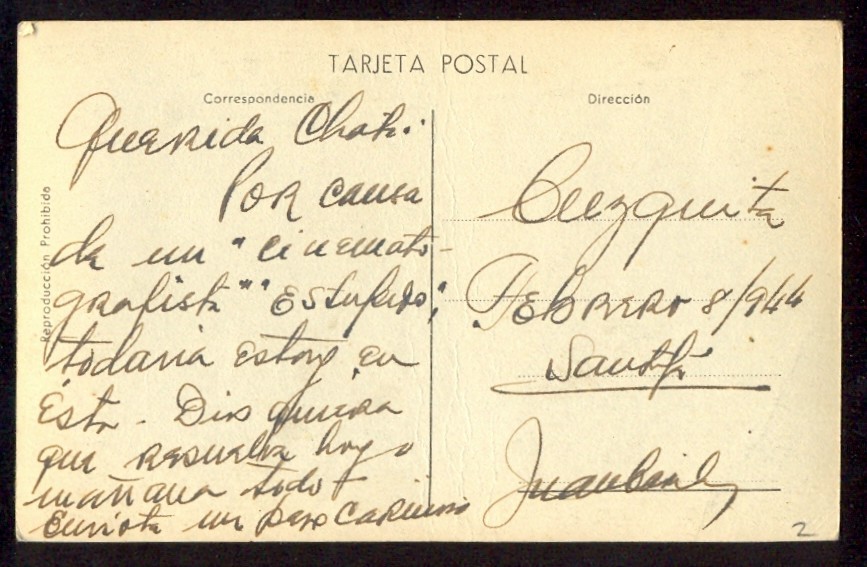 TARJETA POSTAL
Correspondencia
Dirección
Reproducción Prohibida
Querida Chati:
POR causa
de un "cinemato-
grafista" "Estupido",
todavia estoy en
ésta - Dios quiera
que resuelva hoy o
mañana todo
un beso CARIÑOSO
FEBRERO 8/944
Santa Fé
2